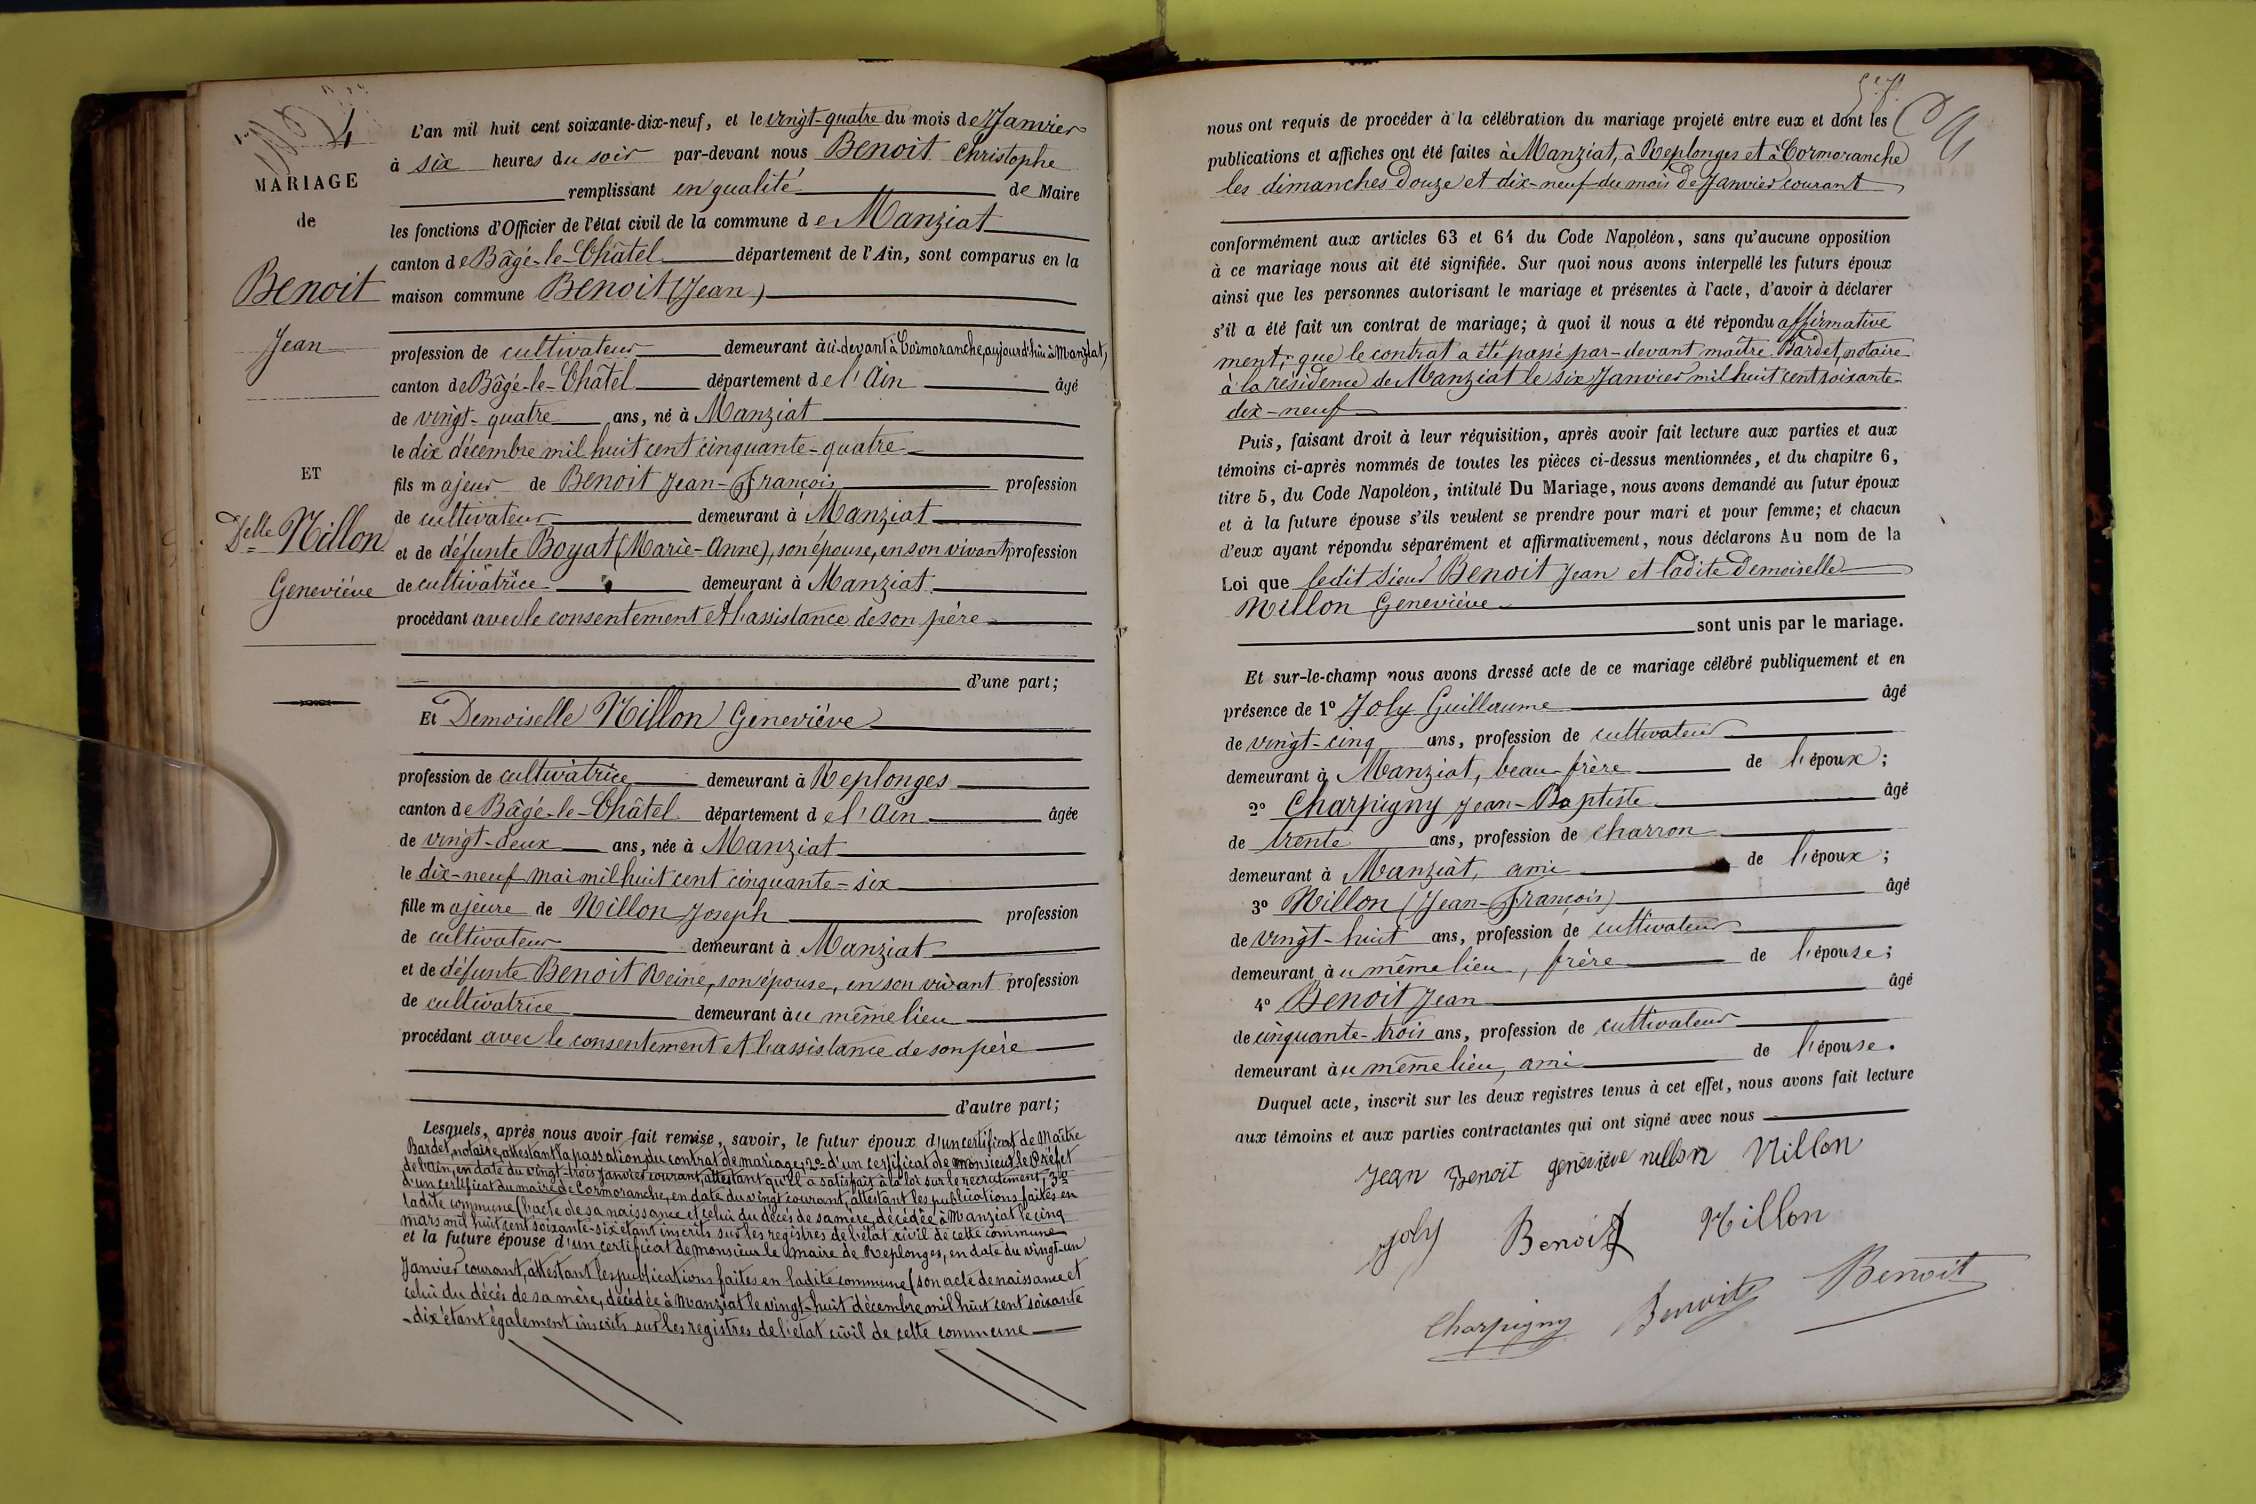 4
MARIAGE
de
Benoit
Jean
ET
Delle Nillon
Geneviève
L'an mil huit cent soixante-dix-neuf, et le vingt-quatre du mois de Janvier
à six heures du soir par-devant nous Benoit Christophe
remplissant en qualité de Maire
les fonctions d'Officier de l'état civil de la commune de Manziat
canton de Bâgé-le-Châtel département de l'Ain, sont comparus en la
maison commune Benoit (Jean)
profession de cultivateur demeurant à ci-devant à Cormoranche, aujourd'hui à Manziat,
canton de Bâgé-le-Châtel département de l'Ain âgé
de vingt-quatre ans, né à Manziat
le dix décembre mil huit cent cinquante-quatre
fils majeur de Benoit Jean-François profession
de cultivateur demeurant à Manziat
et de défunte Boyat (Marie-Anne), son épouse, en son vivant profession
de cultivatrice demeurant à Manziat
procédant avec le consentement et l'assistance de son père
d'une part;
Et Demoiselle Nillon Geneviève
profession de cultivatrice demeurant à Replonges
canton de Bâgé-le-Châtel département de l'Ain âgée
de vingt-deux ans, née à Manziat
le dix-neuf mai mil huit cent cinquante-six
fille majeure de Nillon Joseph profession
de cultivateur demeurant à Manziat
et de défunte Benoit Reine, son épouse, en son vivant profession
de cultivatrice demeurant au même lieu
procédant avec le consentement et l'assistance de son père
d'autre part;
Lesquels, après nous avoir fait remise, savoir, le futur époux d'un certificat de Maître
Bardet, notaire, attestant la passation du contrat de mariage, 2º d'un certificat de monsieur le Préfet
de l'ain, en date du vingt-trois Janvier courant, attestant qu'il a satisfait à la loi sur le recrutement, 3º
d'un certificat du maire de Cormoranche, en date du vingt courant, attestant les publications faites en
ladite commune (l'acte de sa naissance et celui du décès de sa mère, décédée à Manziat le cinq
mars mil huit cent soixante-six étant inscrits sur les registres de l'état civil de cette commune
et la future épouse d'un certificat de monsieur le Maire de Replonges, en date du vingt-un
Janvier courant, attestant les publications faites en ladite commune (son acte de naissance et
celui du décès de sa mère, décédée à Manziat le vingt-huit décembre mil huit cent soixante
-dix étant également inscrits sur les registres de l'état civil de cette commune
nous ont requis de procéder à la célébration du mariage projeté entre eux et dont les
publications et affiches ont été faites à Manziat, à Replonges et à Cormoranche
les dimanches Douze et dix-neuf du mois de Janvier courant
conformément aux articles 63 et 64 du Code Napoléon, sans qu'aucune opposition
à ce mariage nous ait été signifiée. Sur quoi nous avons interpellé les futurs époux
ainsi que les personnes autorisant le mariage et présentes à l'acte, d'avoir à déclarer
s'il a été fait un contrat de mariage; à quoi il nous a été répondu affirmative
ment, que le contrat a été passé par-devant maître Bardet, notaire
à la résidence de Manziat le six Janvier mil huit cent soixante-
dix-neuf
Puis, faisant droit à leur réquisition, après avoir fait lecture aux parties et aux
témoins ci-après nommés de toutes les pièces ci-dessus mentionnées, et du chapitre 6,
titre 5, du Code Napoléon, intitulé Du Mariage, nous avons demandé au futur époux
et à la future épouse s'ils veulent se prendre pour mari et pour femme; et chacun
d'eux ayant répondu séparément et affirmativement, nous déclarons Au nom de la
Loi que ledit sieur Benoit Jean et ladite Demoiselle
Nillon Geneviève
sont unis par le mariage.
Et sur-le-champ nous avons dressé acte de ce mariage célébré publiquement et en
présence de 1º Joly Guillaume âgé
de vingt-cinq ans, profession de cultivateur
demeurant à Manziat, beau-frère de l'époux;
2º Charpigny Jean-Baptiste âgé
de trente ans, profession de charron
demeurant à Manziat, ami de l'époux;
3º Nillon (Jean-François) âgé
de vingt-huit ans, profession de cultivateur
demeurant au même lieu, frère de l'épouse;
4º Benoit Jean âgé
de cinquante-trois ans, profession de cultivateur
demeurant au même lieu, ami de l'épouse.
Duquel acte, inscrit sur les deux registres tenus à cet effet, nous avons fait lecture
aux témoins et aux parties contractantes qui ont signé avec nous
Jean Benoit geneviève nillon Nillon
joly Benoit Nillon
Charpigny Benoit Benoit